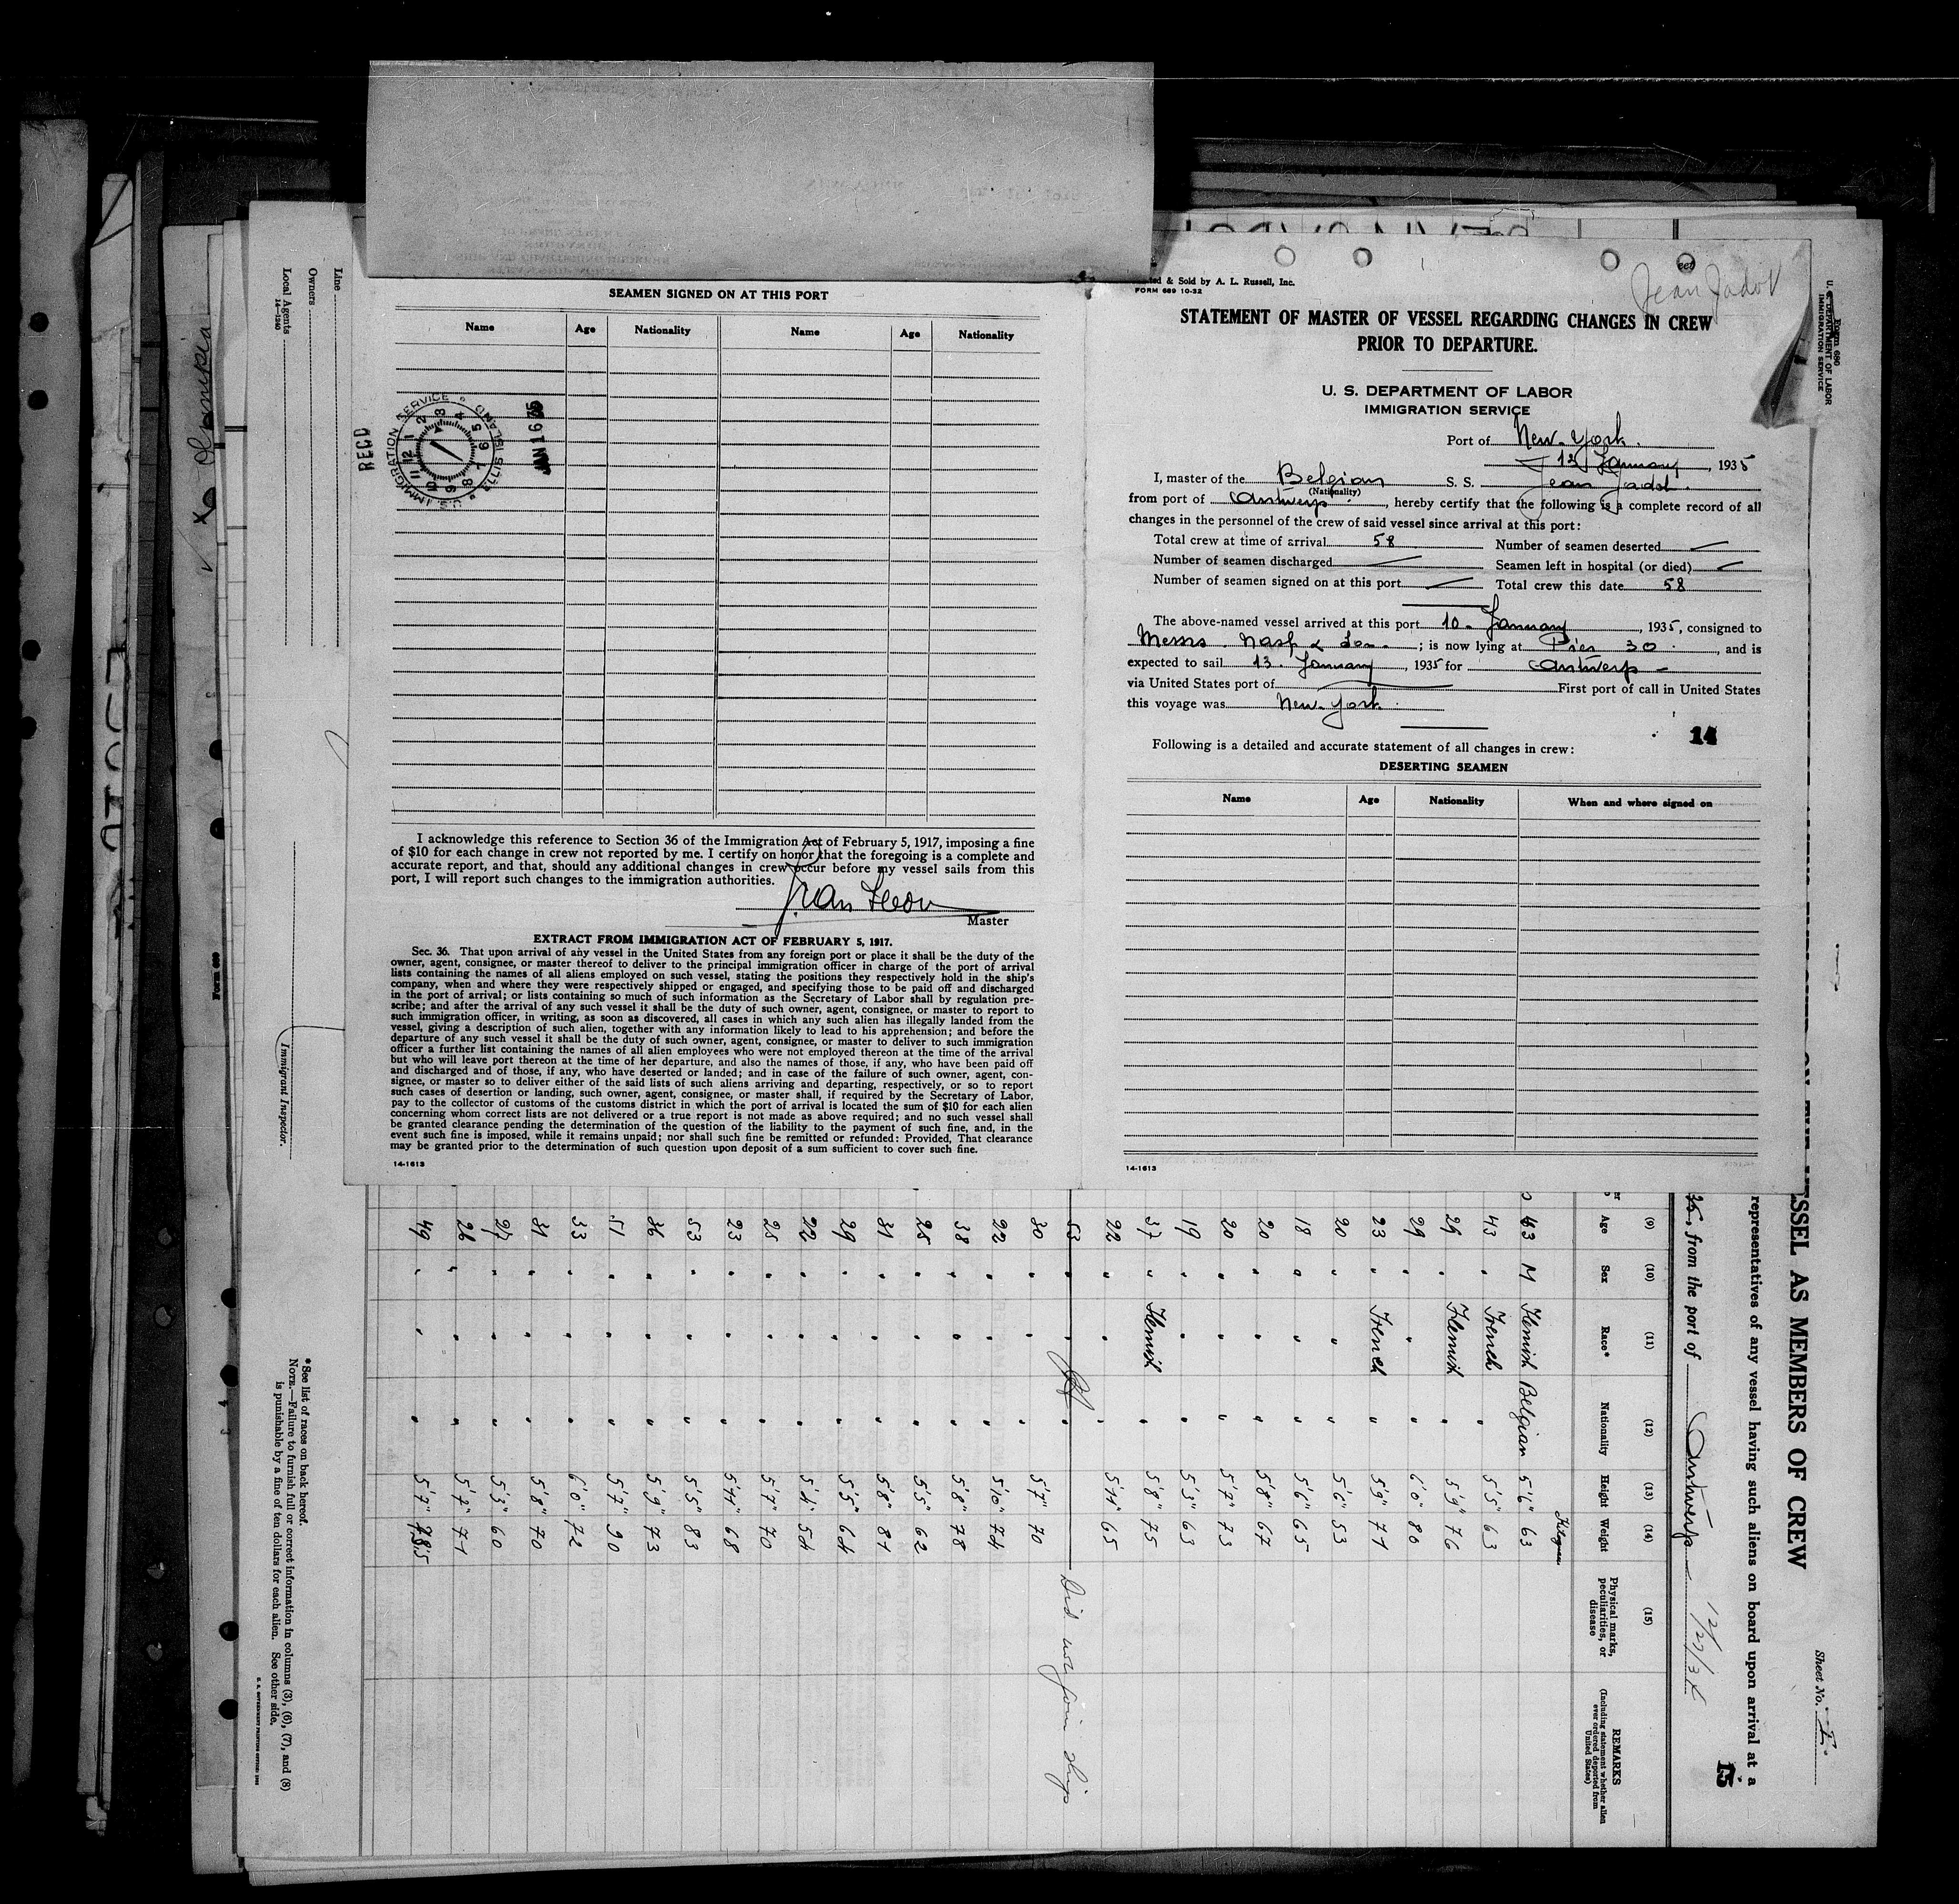 SEAMEN SIGNED ON AT THIS PORT
Name Age Nationality Name Age Nationality
RECD
U.S. IMMIGRATION SERVICE ELLIS ISLAND
JAN 16 35
I acknowledge this reference to Section 36 of the Immigration Act of February 5, 1917, imposing a fine
of $10 for each change in crew not reported by me. I certify on honor that the foregoing is a complete and
accurate report, and that, should any additional changes in crew occur before my vessel sails from this
port, I will report such changes to the immigration authorities.
Master
EXTRACT FROM IMMIGRATION ACT OF FEBRUARY 5, 1917.
Sec. 36. That upon arrival of any vessel in the United States from any foreign port or place it shall be the duty of the
owner, agent, consignee, or master thereof to deliver to the principal immigration officer in charge of the port of arrival
lists containing the names of all aliens employed on such vessel, stating the positions they respectively hold in the ship's
company, when and where they were respectively shipped or engaged, and specifying those to be paid off and discharged
in the port of arrival; or lists containing so much of such information as the Secretary of Labor shall by regulation pre-
scribe; and after the arrival of any such vessel it shall be the duty of such owner, agent, consignee, or master to report to
such immigration officer, in writing, as soon as discovered, all cases in which any such alien has illegally landed from the
vessel, giving a description of such alien, together with any information likely to lead to his apprehension; and before the
departure of any such vessel it shall be the duty of such owner, agent, consignee, or master to deliver to such immigration
officer a further list containing the names of all alien employees who were not employed thereon at the time of the arrival
but who will leave port thereon at the time of her departure, and also the names of those, if any, who have been paid off
and discharged and of those, if any, who have deserted or landed; and in case of the failure of such owner, agent, con-
signee, or master so to deliver either of the said lists of such aliens arriving and departing, respectively, or so to report
such cases of desertion or landing, such owner, agent, consignee, or master shall, if required by the Secretary of Labor,
pay to the collector of customs of the customs district in which the port of arrival is located the sum of $10 for each alien
concerning whom correct lists are not delivered or a true report is not made as above required; and no such vessel shall
be granted clearance pending the determination of the question of the liability to the payment of such fine, and, in the
event such fine is imposed, while it remains unpaid; nor shall such fine be remitted or refunded: Provided, That clearance
may be granted prior to the determination of such question upon deposit of a sum sufficient to cover such fine.
14-1613
& Sold by A. L. Russell, Inc.
FORM 689 10-32
Jean Jadot
STATEMENT OF MASTER OF VESSEL REGARDING CHANGES IN CREW
PRIOR TO DEPARTURE.
U. S. DEPARTMENT OF LABOR
IMMIGRATION SERVICE
Port of New-York.
12 January, 1935
I, master of the Belgian S. S. Jean Jadot.
(Nationality)
from port of Antwerp, hereby certify that the following is a complete record of all
changes in the personnel of the crew of said vessel since arrival at this port:
Total crew at time of arrival 58 Number of seamen deserted —
Number of seamen discharged — Seamen left in hospital (or died) —
Number of seamen signed on at this port — Total crew this date 58
The above-named vessel arrived at this port 10- January, 1935, consigned to
Messrs. ; is now lying at Pier 30, and is
expected to sail 13. January, 1935 for Antwerp -
via United States port of — First port of call in United States
this voyage was New-York.
14
Following is a detailed and accurate statement of all changes in crew:
DESERTING SEAMEN
Name Age Nationality When and where signed on
14-1613
Form 680
U. S. DEPARTMENT OF LABOR
IMMIGRATION SERVICE
Sheet No. I.
SSEL AS MEMBERS OF CREW
representatives of any vessel having such aliens on board upon arrival at a
15
35, from the port of Antwerp
(9) (10) (11) (12) (13) (14) (15)
Age Sex Race* Nationality Height Weight Physical marks, peculiarities, or disease REMARKS
(Including statement whether alien ever ordered deported from United States)
43 M Flemish Belgian 5'6" 63
43 " French " 5'5" 63
29 " Flemish " 5'9" 76
29 " " " 6'0" 80
23 " French " 5'9" 71
20 " " " 5'6" 53
18 " " " 5'6" 65
20 " " " 5'8" 67
20 " " " 5'7" 73
19 " " " 5'3" 63
37 " Flemish " 5'8" 75
22 " " " 5'11" 65
53 " " " Did not join ship
30 " " " 5'7" 70
22 " " " 5'10" 74
38 " " " 5'8" 78
25 " " " 5'5" 62
31 " " " 5'8" 81
29 " " " 5'5" 64
22 " " " 5'4" 54
25 " " " 5'7" 70
23 " " " 5'11" 68
53 " " " 5'5" 83
36 " " " 5'9" 73
51 " " " 5'7" 90
33 " " " 6'0" 72
31 " " " 5'8" 70
27 " " " 5'3" 60
26 " " " 5'7" 71
49 " " " 5'7"
Line
Owners
Local Agents
14-1240
Immigrant Inspector.
*See list of races on back hereof.
NOTE.—Failure to furnish full or correct information in columns (3), (6), (7), and (8)
is punishable by a fine of ten dollars for each alien. See other side.
Form 689